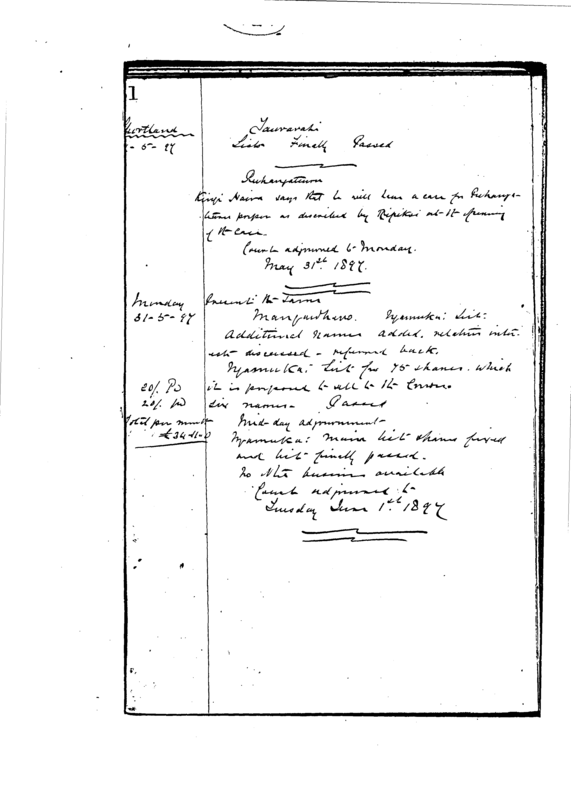 1
Shortland
- 5- 97
Tauwarahi
Lists Finally Passed
says that he will hear a case for
as described by Ripikoi at the opening
of the case
Court adjourned to Monday.
May 31st 1897.
Monday
31-5-97
Present: the Same
Ngamuka: List:
Additional names added. relative inter-
ests discussed - referred back.
Ngamuka: List for 75 shares. which
20/. Pd
it is proposed to sell to the Crown
20/. pd
six names - Passed
Total per month
Mid-day adjournment -
Ngamuka: main list shares fixed
and list finally passed.
No other business available
Court adjourned to
Tuesday June 1st 1897